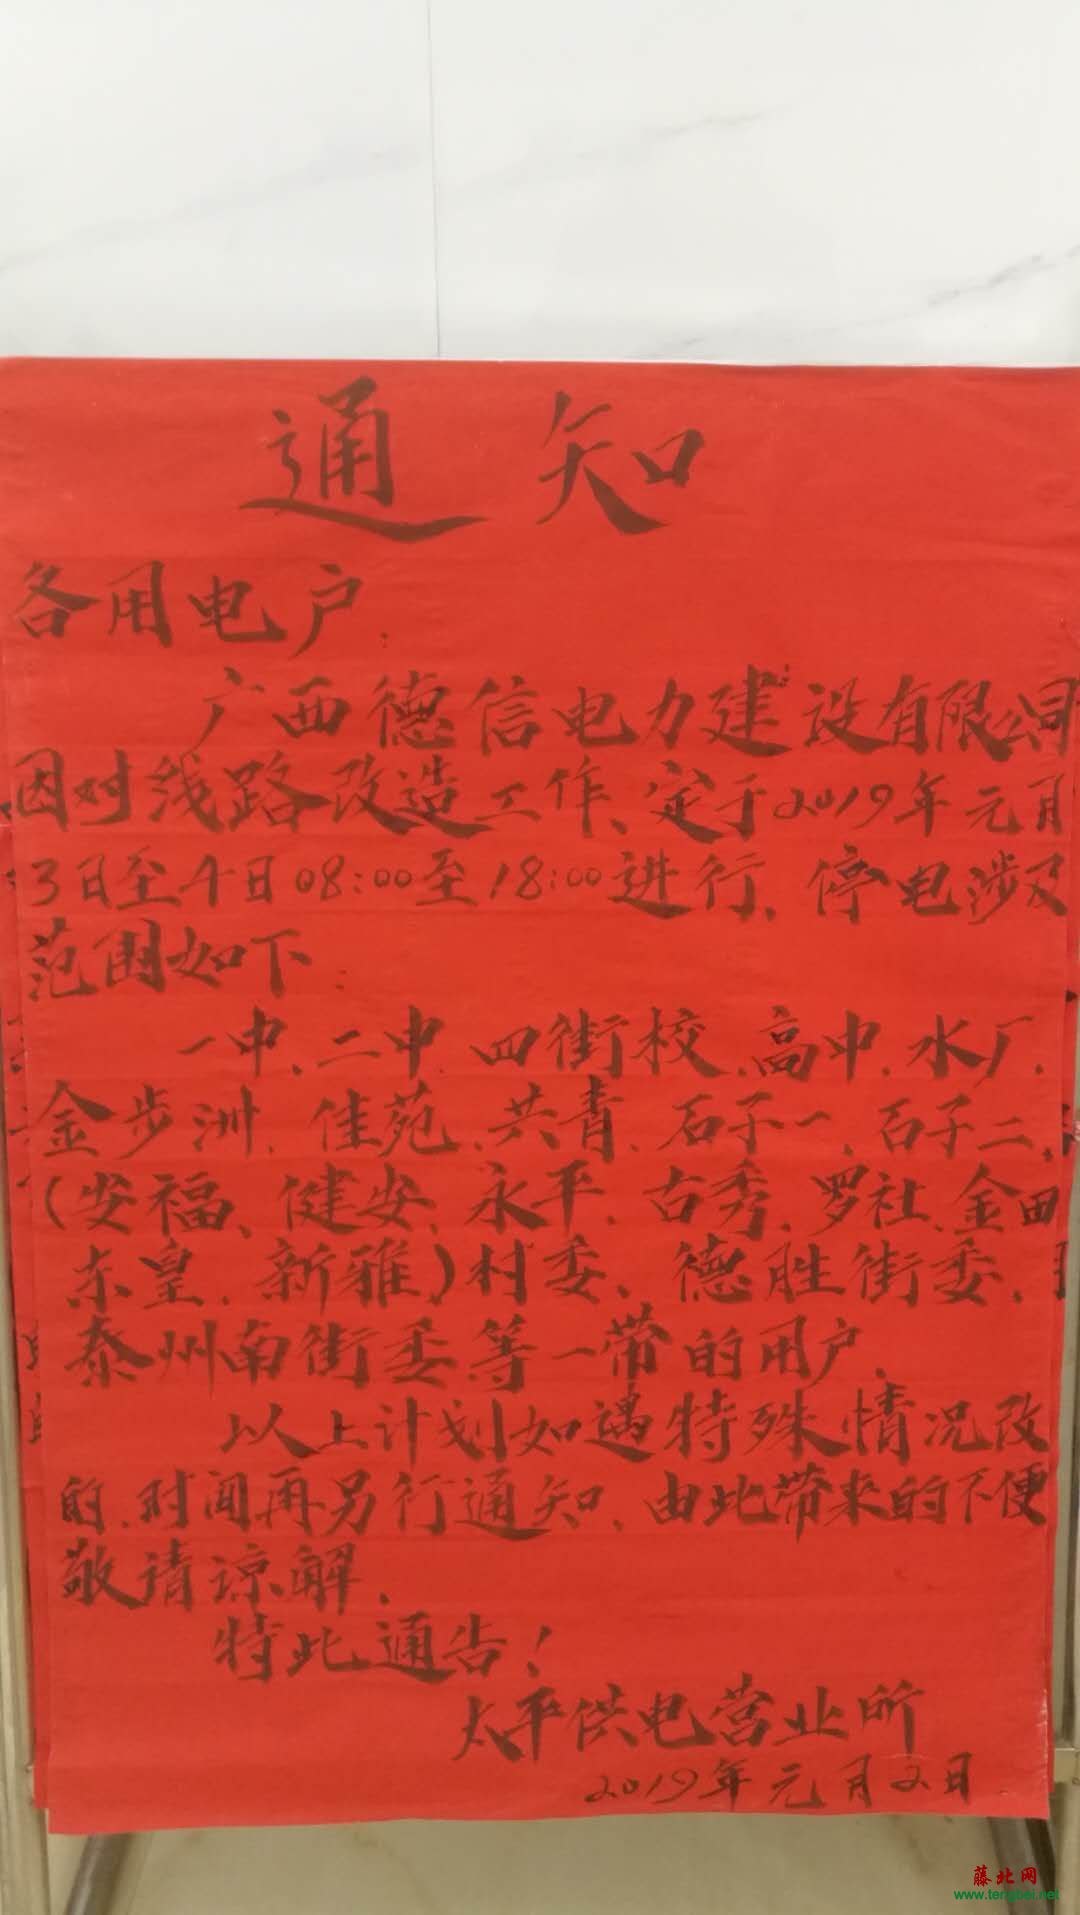 通知
各用电户:
广西德信电力建设有限公司
因对线路改造工作、定于2019年元月
3日至4日08:00至18:00进行、停电涉及
范围如下:
一中、二中、四街校、高中、水厂、
金步洲、佳苑、共青、石子一、石子二、
(安福、健安、永平、古秀、罗社、金田
东皇、新雅)村委、德胜街委、
泰州南街委等一带的用户、
以上计划如遇特殊情况改
的、时间再另行通知、由此带来的不便
敬请谅解、
特此通告!
太平供电营业所
2019年元月2日
藤北网
www.tengbei.net